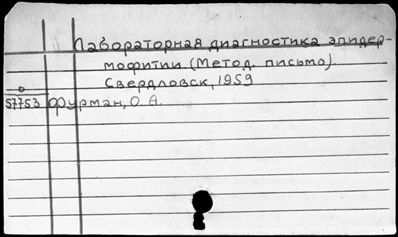 Лабораторная диагностика эпидер-
мофитии. (Метод. письмо).
Свердловск, 1959
57753 Фурман, О. А.